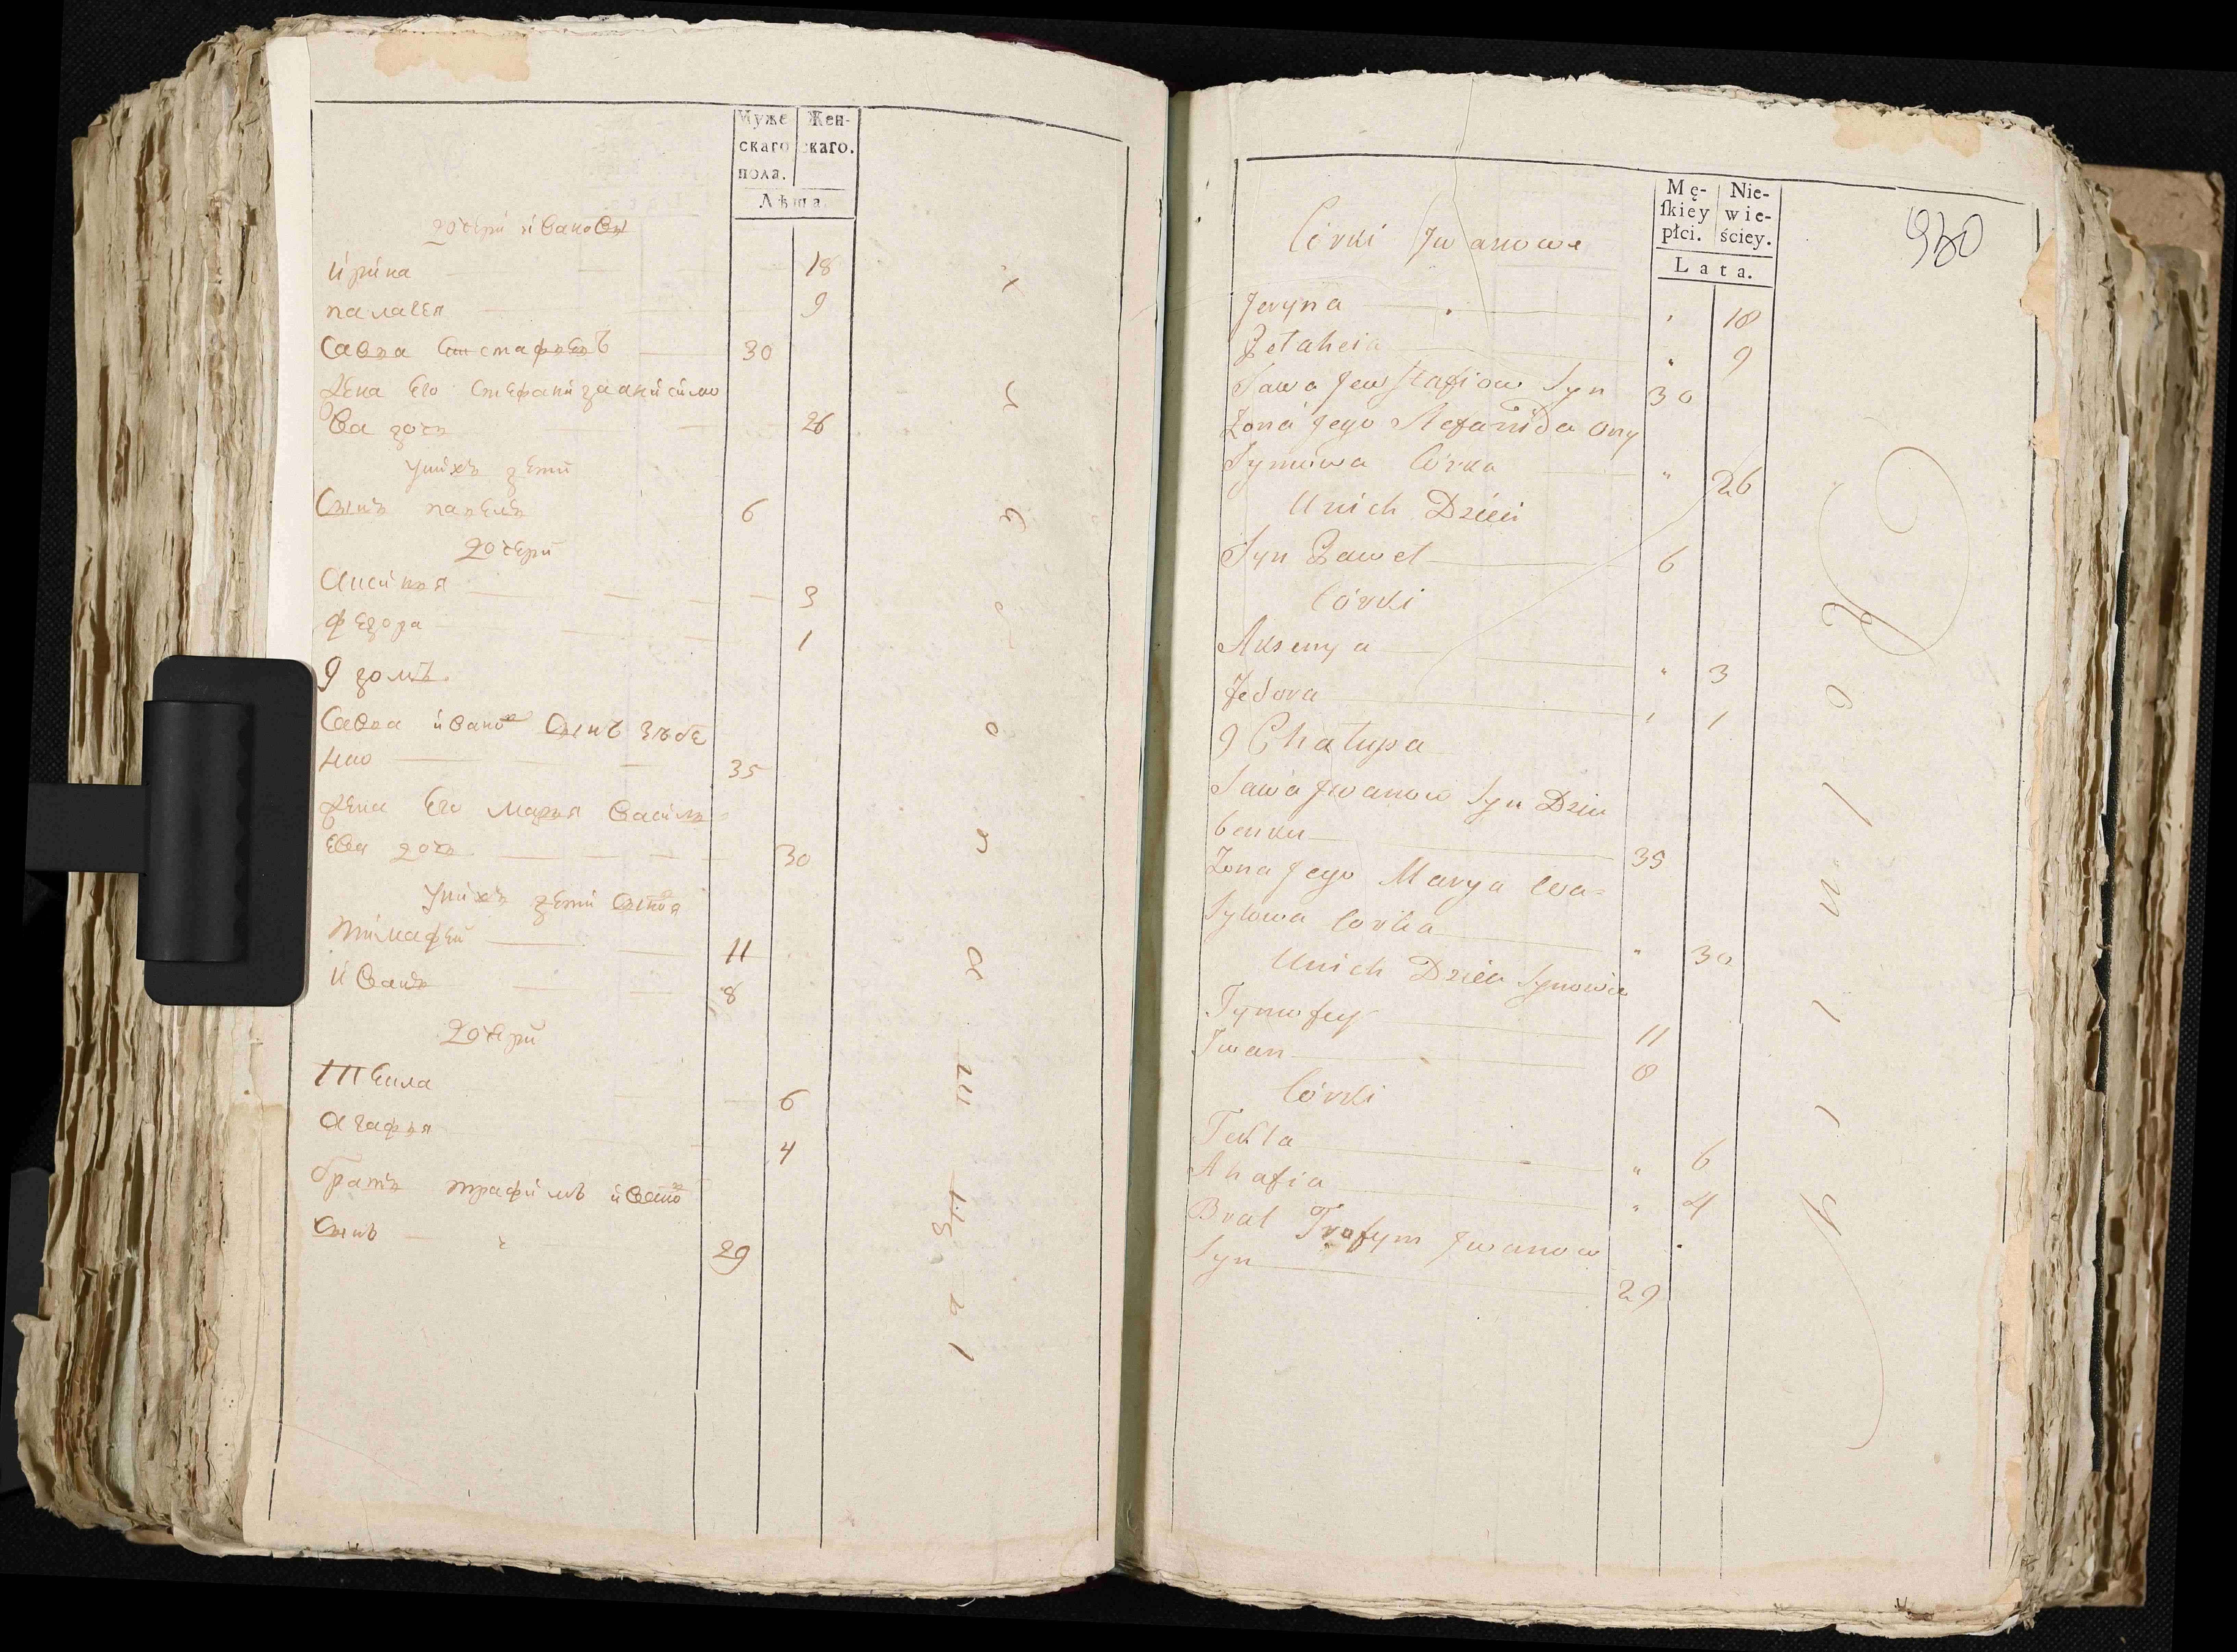 Муже
скаго
пола.
Жен-
скаго.
Лѣта.
дочери ивановы
ирина 18
палагея 9
Савка Евстафиевъ 30
Жена Его Стефанида анисимо
ва дочь 26
у нихъ дети
Сынъ павелъ 6
дочери
Аксиния 3
федора 1
9 домъ.
Савка иванов Сынъ Зюбе
нко 35
Жена Его Мария Василь
ева дочь 30
у нихъ дети Сыновя
тимафей 11
иванъ 8
дочери
Текла 6
Агафия 4
братъ трафимъ ивано
Сынъ 29
Mę-
ſkiey
płci.
Nie-
wie-
ściey.
Lata.
930
Córki Jwanowe
Jeryna " 18
Pełaheia " 9
Sawa Jewstafiow Syn 30
Żona Jego Stefanida Ony
Symowa Córka " 26
Unich Dzieci
Syn Paweł 6
Córki
Aksenya " 3
Fedora " 1
9 Chałupa
Sawa Jwanow Syn Dziu
benku 35
Żona Jego Marya Wa=
Sylowa Corka " 30
Unich Dzieci Synowie
Tymofey 11
Jwan 8
Córki
Tekla " 6
Ahafia " 4
Brat Trofym Jwanow
Syn 29